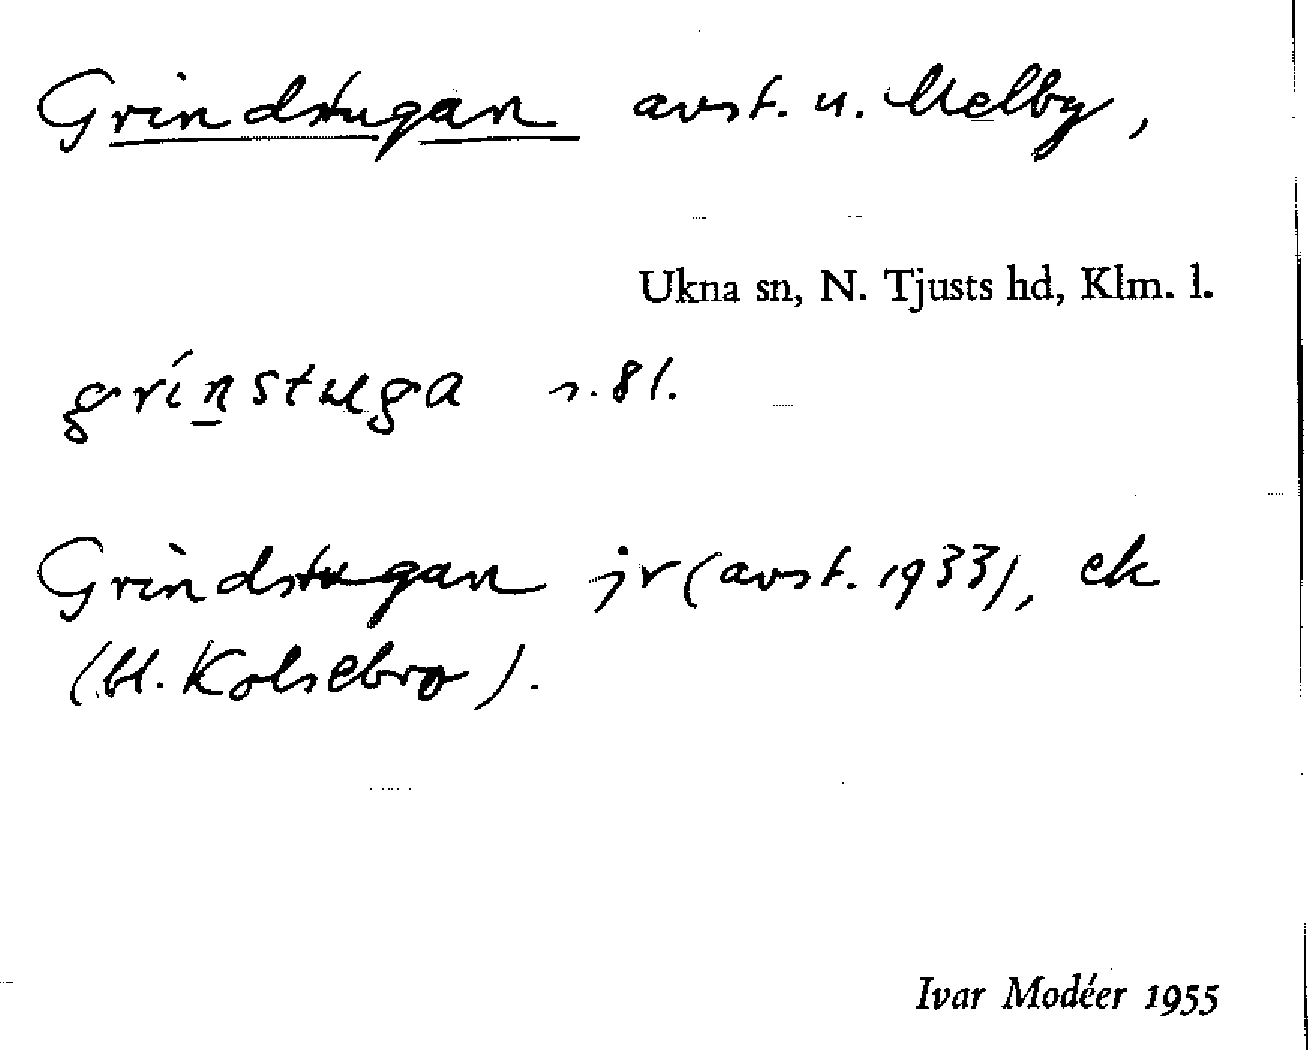 Grindstugan avst. u. Melby,
Ukna sn, N. Tjusts hd, Klm. l.
grinstuga s. 81.
Grindstugan jr (avst. 1933), ek
(bl. Kolsebro).
Ivar Modéer 1955